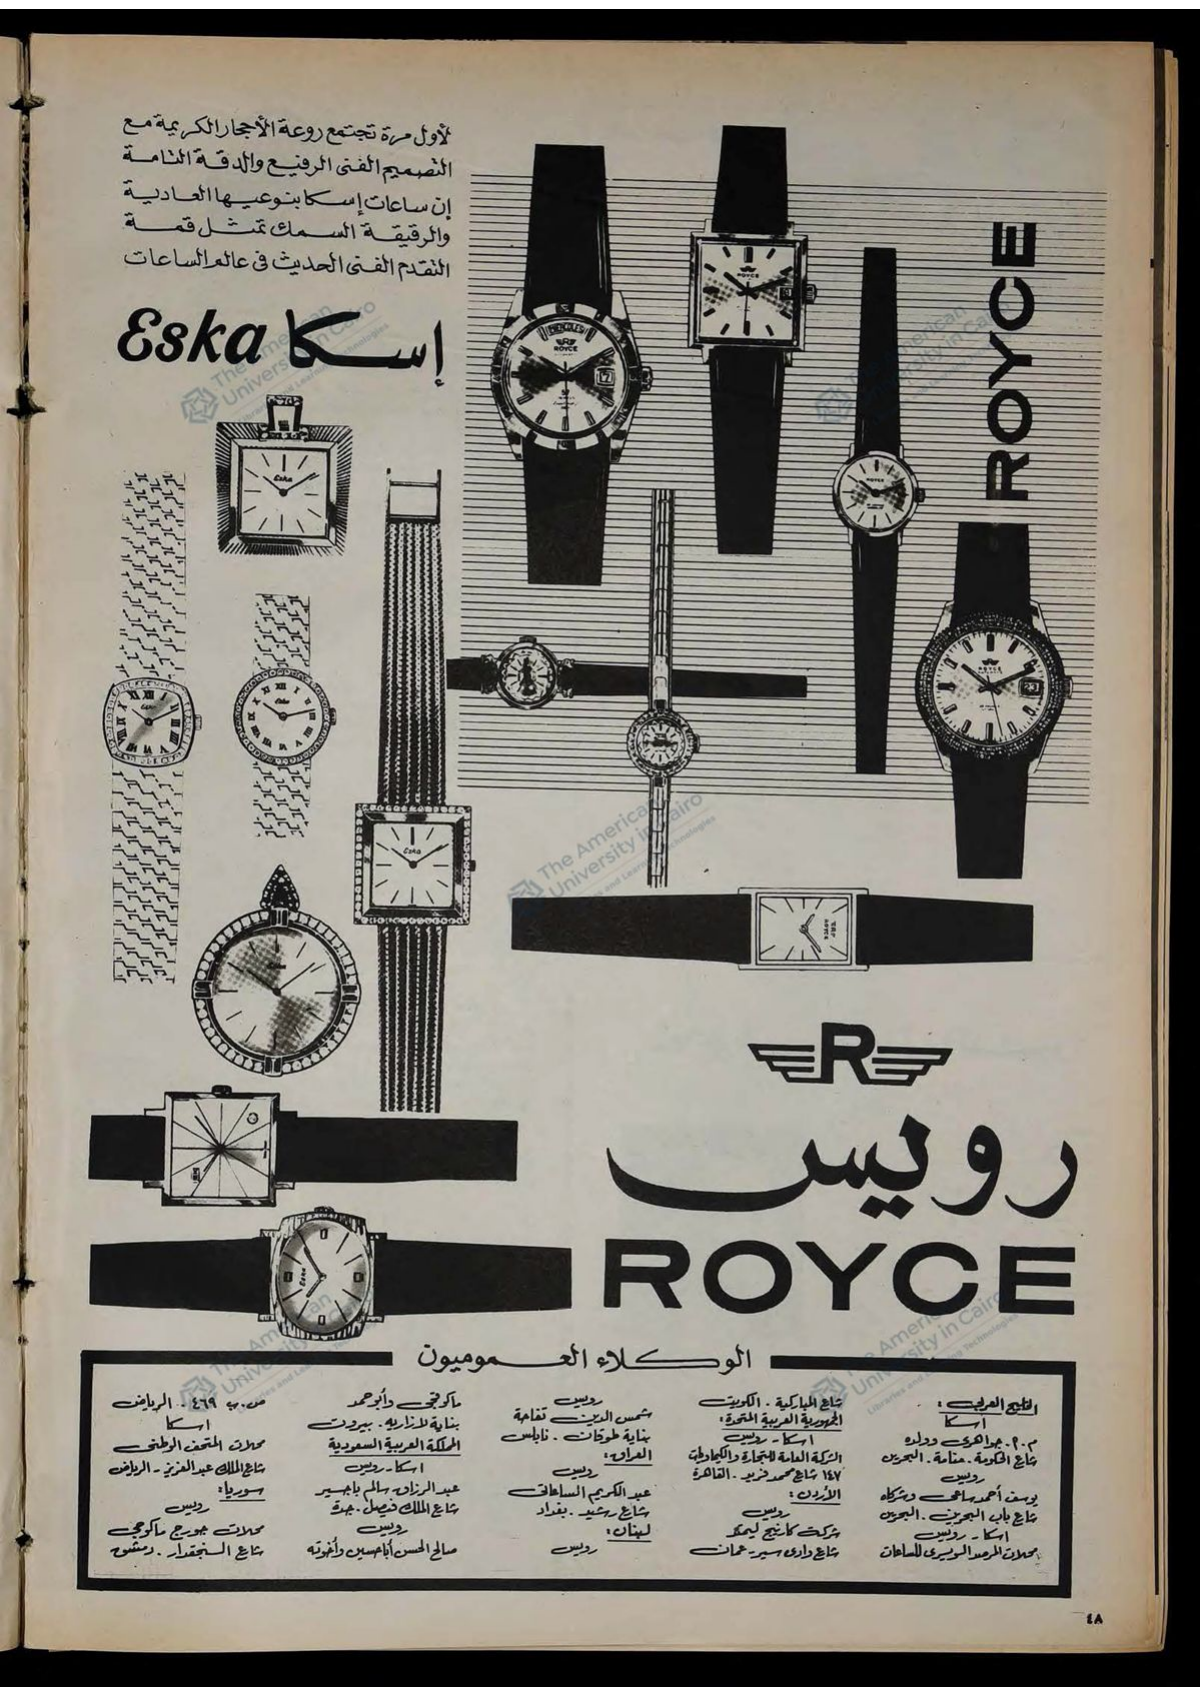 لأول مرة تجتمع روعة الأحجار الكريمة مع
التصميم الفنى الرفيع والدقة التامة
إن ساعات إسكا بنوعيها العادية
والرقيقة السمك تمثل قمة
التقدم الفنى الحديث فى عالم الساعات
Eska إسكا
ROYCE
R
رويس
ROYCE
الوكلاء العموميون
الخليج العربى :
اسكا
م.م. جواهرى وولده
شارع الحكومة . منامة . البحرين
رويس
يوسف أحمد ساعى وشركاه
شارع باب البحرين . البحرين
اسكا - رويس
محلات المرصد السويسرى للساعات
شارع المباركية . الكويت
الجمهورية العربية المتحدة :
اسكا - رويس
الشركة العامة للتجارة والكيماويات
١٤٧ شارع محمد فريد . القاهرة
الأردن :
رويس
شركة كارنيج ليمتد
شارع وادى سير - عمان
رويس
شمس الدين تفاحة
بناية طوقان . نابلس
العراق :
رويس
عبد الكريم الساعاتى
شارع رشيد . بغداد
لبنان :
رويس
ماكوقى وأبو حمد
بناية لازاريه . بيروت
المملكة العربية السعودية
اسكا - رويس
عبد الرزاق سالم باجسير
شارع الملك فيصل . جدة
رويس
صالح الحسن أباحسين وأخوته
ص . ب ٤٦٩ . الرياض
اسكا
محلات المتحف الوطنى
شارع الملك عبد العزيز - الرياض
سوريا :
رويس
محلات جورج ماكوجى
شارع السنجقدار . دمشق
٤٨
The American
University in Cairo
Libraries and Learning Technologies